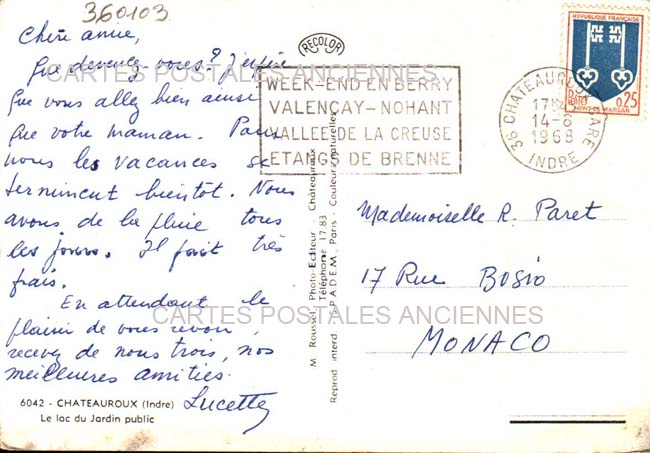 360103
Chère amie,
Que devenez-vous? J'espère
que vous allez bien ainsi
que votre maman. Pour
nous les vacances se
terminent bientôt. Nous
avons de la pluie tous
les jours. Il fait très
frais.
En attendant le
plaisir de vous revoir,
recevez de nous trois, nos
meilleures amitiés.
Lucette
6042 - CHATEAUROUX (Indre)
Le lac du Jardin public
RECOLOR
WEEK-END EN BERRY
VALENÇAY-NOHANT
VALLEE DE LA CREUSE
ETANGS DE BRENNE
36 CHATEAUROUX GARE
17H
14-8
1968
INDRE
REPUBLIQUE FRANÇAISE
POSTES
0,25
MONT-DE-MARSAN
M. Rousset, Photo-Editeur - Châteauroux
Téléphone 17.83
Reprod. interd. S.P.A.D.E.M., Paris - Couleurs naturelles
Mademoiselle R. Paret
17 Rue BOSIO
MONACO
CARTES POSTALES ANCIENNES
CARTES POSTALES ANCIENNES